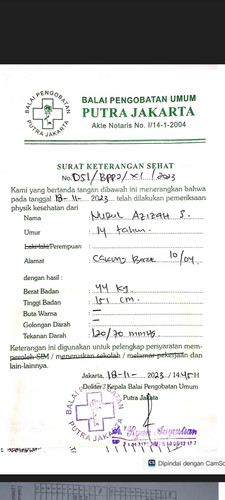 BALAI PENGOBATAN
PUTRA JAKARTA
BALAI PENGOBATAN UMUM
PUTRA JAKARTA
Akte Notaris No. I/14-1-2004
SURAT KETERANGAN SEHAT
No. 051/BPPJ/XI/2023
Kami yang bertanda tangan dibawah ini menerangkan bahwa
pada tanggal 18-11-2023 telah dilakukan pemeriksaan
physik kesehatan dari
Nama : Nurul Azizah S.
Umur : 14 tahun.
Laki-laki/Perempuan :
Alamat : Cakung Barat 10/04.
dengan hasil :
Berat Badan : 44 kg.
Tinggi Badan : 151 cm.
Buta Warna : —
Golongan Darah : —
Tekanan Darah : 120/70 mmHg.
Keterangan ini digunakan untuk pelengkap persyaratan mem-
peroleh SIM / meneruskan sekolah / melamar pekerjaan dan
lain-lainnya.
Jakarta, 18-11-2023 / 14:45 H
Dokter / Kepala Balai Pengobatan Umum
Putra Jakarta
BALAI PENGOBATAN
PUTRA JAKARTA
Dipindai dengan CamSc